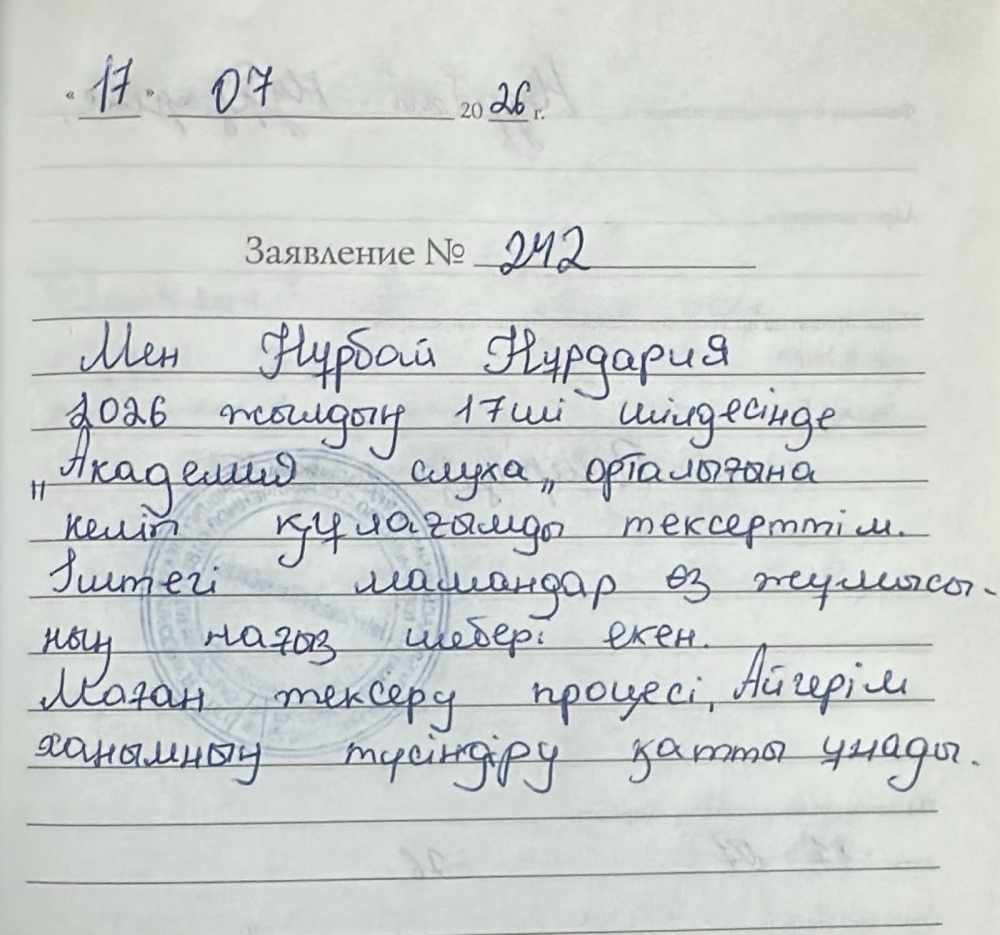 « 17 » 07 2026 г.
Заявление № 242
Мен Нұрбай Нұрдария
2026 жылдың 17ші шілдесінде
"Академия слуха" орталығына
келіп құлағымды тексерттім.
Іштегі мамандар өз жұмысы-
ның нағыз шебері екен.
Маған тексеру процесі, Айгерім
ханымның түсіндіру қатты ұнады.